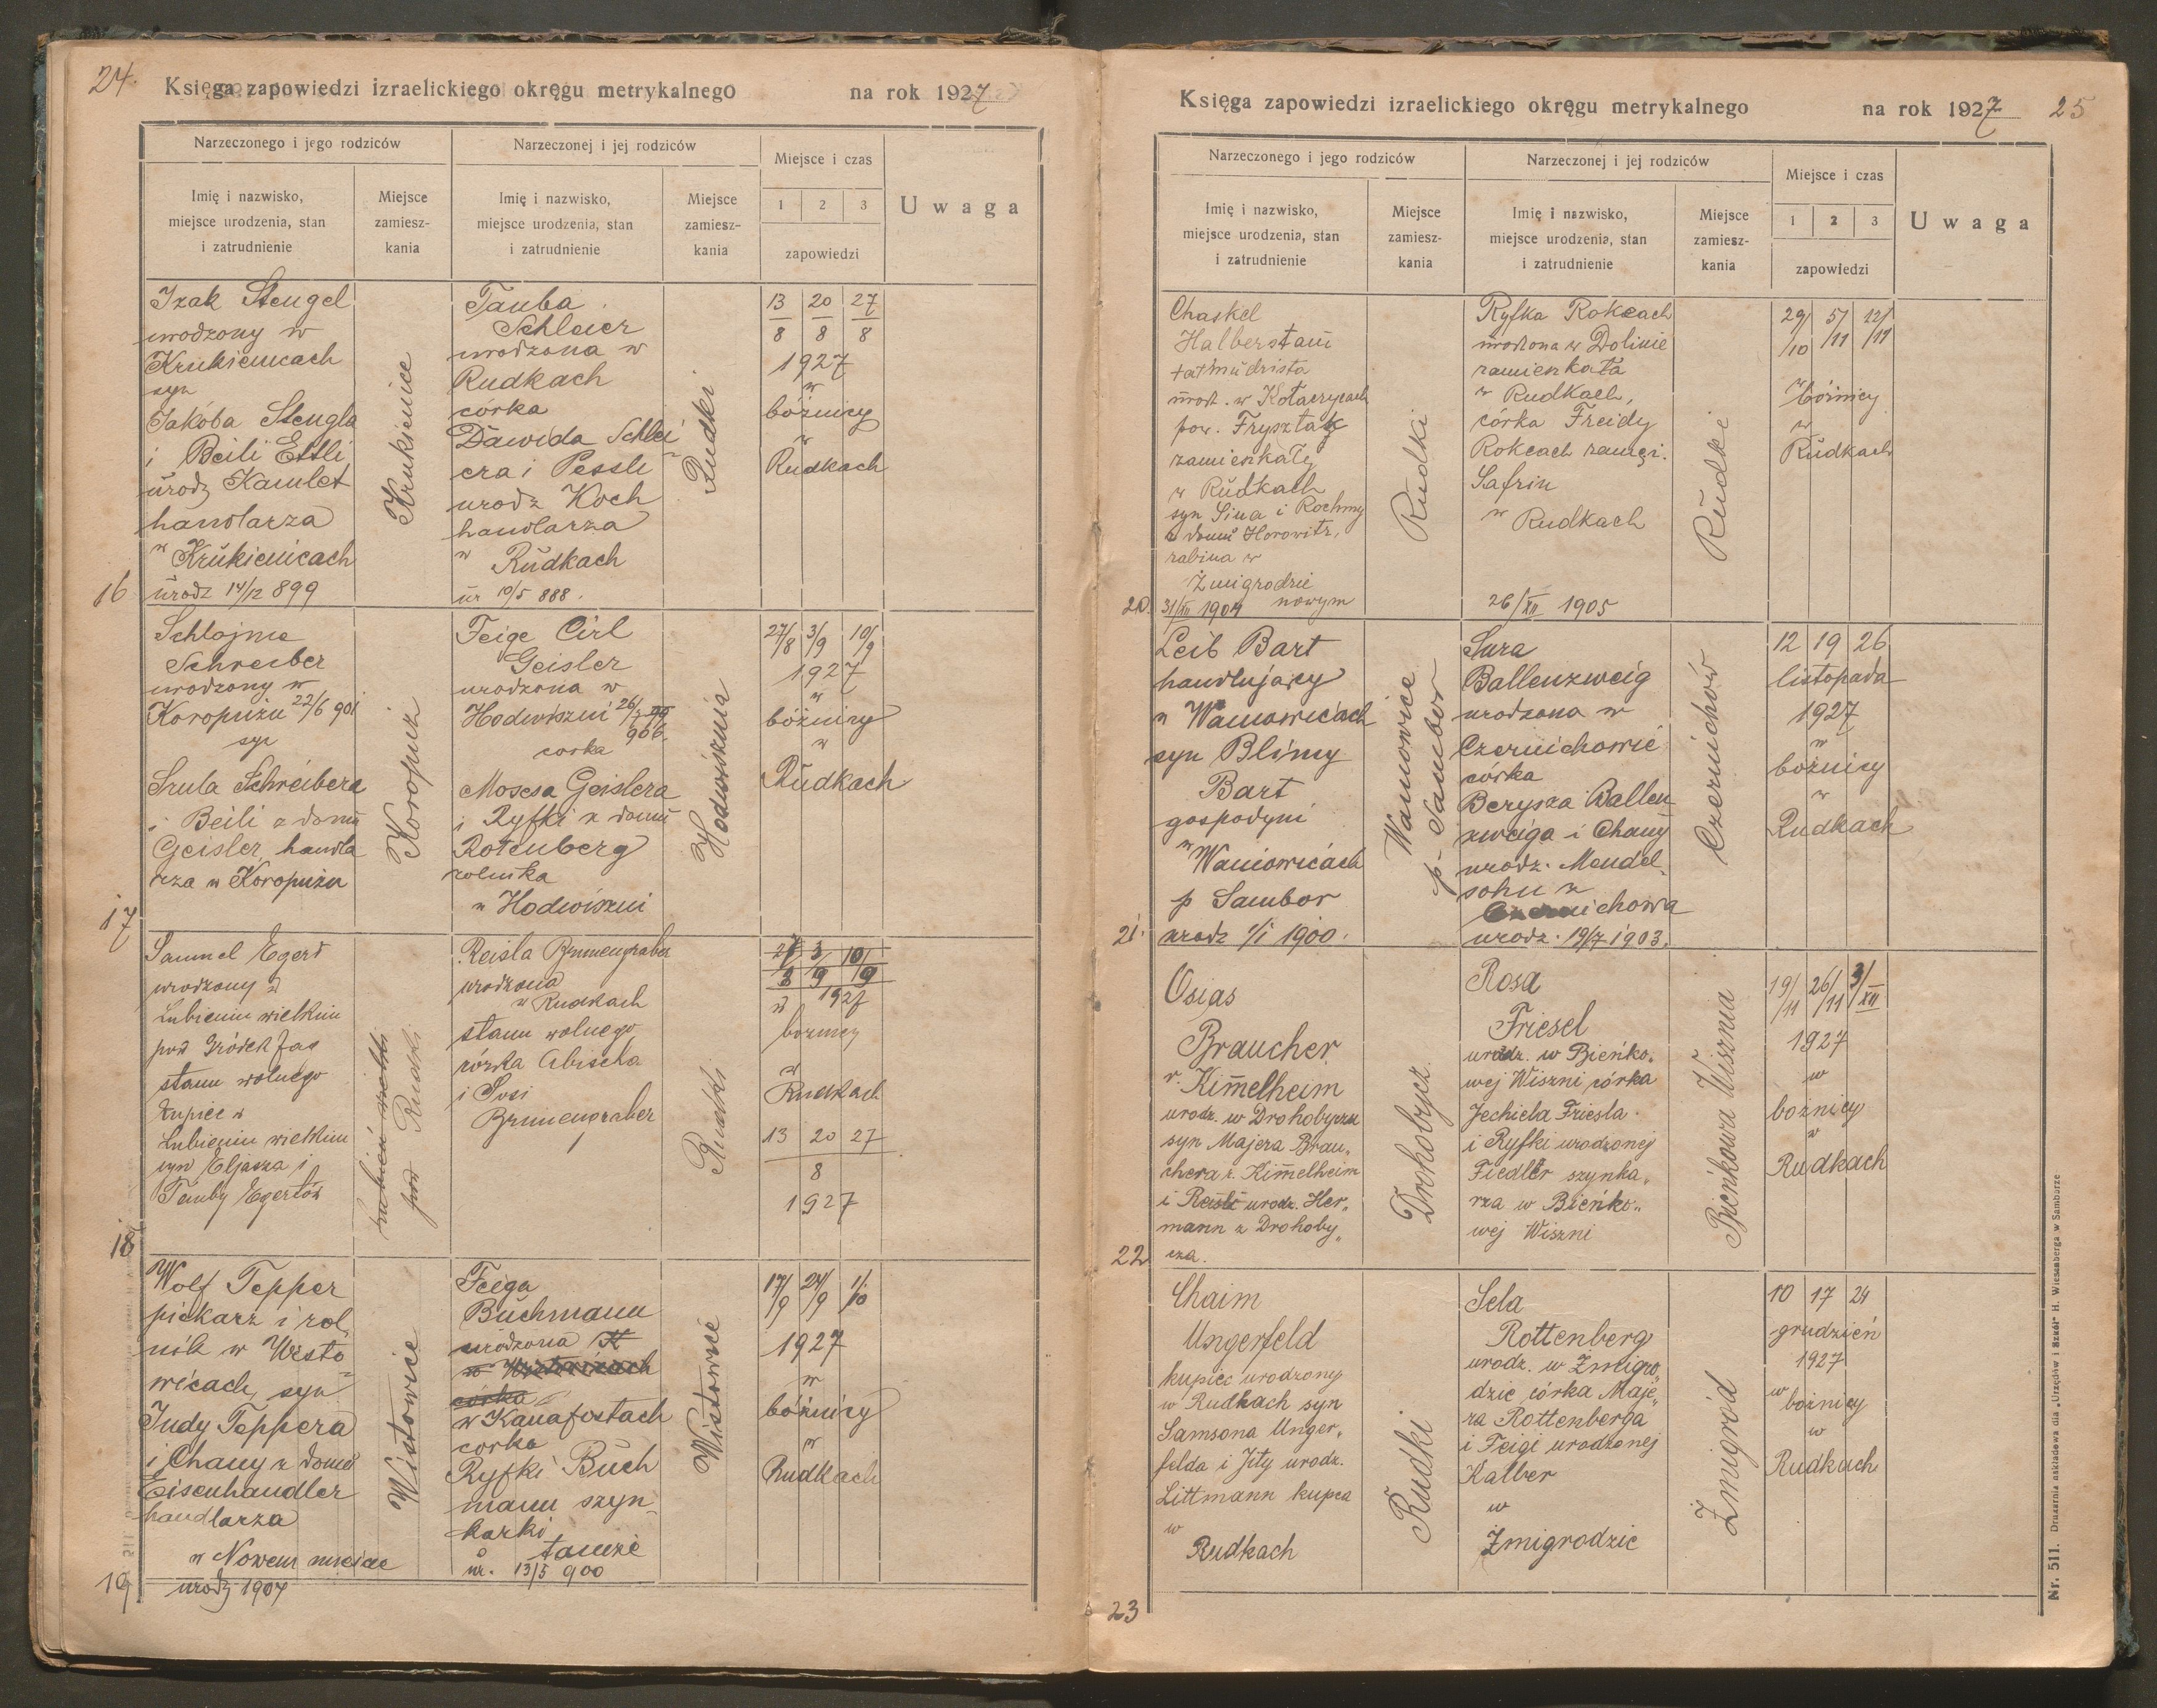 24.
Księga zapowiedzi izraelickiego okręgu metrykalnego na rok 1927
Narzeczonego i jego rodziców
Narzeczonej i jej rodziców
Miejsce i czas
Uwaga
Imię i nazwisko,
miejsce urodzenia, stan
i zatrudnienie
Miejsce
zamiesz-
kania
Imię i nazwisko,
miejsce urodzenia, stan
i zatrudnienie
Miejsce
zamiesz-
kania
1 2 3
zapowiedzi
Izak Stengel
urodzony w
Krukienicach
syn
Jakóba Stengla
i Beili Ettli
urodz Kamlet
handlarza
w Krukienicach
urodz 14/12 899
16
Krukienice
Tauba
Schleier
urodzona w
Rudkach
córka
Dawida Schlei
era i Pessli
urodz Koch
handlarza
w Rudkach
ur 10/5 888.
Rudki
13 20 27
8 8 8
1927
w
bóżnicy
w
Rudkach
Schlojme
Schreiber
urodzony w
Koropużu 22/6 901
syn
Srula Schreibera
i Beili z domu
Geisler, handla
rza w Koropużu
17
Koropuż
Feige Cirl
Geisler
urodzona w
Hodwiszni 26/3
906.
corka
Mosesa Geislera
i Ryfki z domu
Rotenberg
rolnika
w Hodwiszni
Hodwisznia
27/8 3/9 10/9
1927
w
bóżnicy
w
Rudkach
Samuel Egert
urodzony w
Lubieniu wielkim
pod Gródek Jag
stanu wolnego
kupiec w
Lubieniu wielkim
syn Eljasza i
Tauby Egertów
18
Lubień wielki
pod Rudki
Reisla Brunengraber
urodzona
w Rudkach
stanu wolnego
córka Abischa
i Sosi
Brunengraber
Rudki
27 3 10
8 9 9
w 1927
bożnicy
w
Rudkach
13 20 27
8
1927
Wolf Tepper
piekarz i rol
nik w Wisto
wicach, syn
Judy Teppera
i Chany z domu
Eisenhandler
handlarza
w Nowem mieście
urodz 1904
19
Wistowice
Feiga
Buchmann
urodzona
w Wistowicach
córka
w Kanafostach
corka
Ryfki Buch
mann szyn
karki
tamże
ur. 13/5 900
Wistowice
17/9 24/9 1/10
1927
w
bóżnicy
w
Rudkach
Księga zapowiedzi izraelickiego okręgu metrykalnego na rok 1927
25
Narzeczonego i jego rodziców
Narzeczonej i jej rodziców
Miejsce i czas
Uwaga
Imię i nazwisko,
miejsce urodzenia, stan
i zatrudnienie
Miejsce
zamiesz-
kania
Imię i nazwisko,
miejsce urodzenia, stan
i zatrudnienie
Miejsce
zamiesz-
kania
1 2 3
zapowiedzi
Chaskel
Halberstam
talmudrista
urodz. w Kołaczycach
pow. Frysztak
zamieszkały
w Rudkach
syn Sina i Rochmy
z domu Horowitz,
rabina w
Żmigrodzie
nowym
31/XII 1904
20.
Rudki
Ryfka Rokeach
urodzona w Dolinie
zamieszkała
w Rudkach,
córka Freidy
Rokeach zamęż.
Safrin
w Rudkach
26/XII 1905
Rudki
29/10 5/11 12/11
w
bóżnicy
w
Rudkach
Leib Bart
handlujący
w Waniowicach
syn Blimy
Bart
gospodyni
w Waniowicach
p Sambor
urodz 1/1 1900.
21.
Waniowice
p. Sambor
Sura
Ballenzweig
urodzona w
Czernichowie
córka
Berysza Ballen
zweiga i Chany
urodz. Mendel
sohn z
Czernichowa
urodz. 19/7 1903.
Czernichów
12 19 26
listopada
1927
w
bożnicy
w
Rudkach
Osias
Braucher
r. Kim̄elheim
urodz. w Drohobyczu
syn Majera Brau„
chera r. Kim̄elheim
i Reisli urodz. Her„
mann z Drohoby„
cza.
22
Drohobycz
Rosa
Friesel
urodz. w Bieńko„
wej Wiszni córka
Jechiela Friesla
i Ryfki urodzonej
Fiedler szynka„
rza w Bieńko„
wej Wiszni
Bieńkowa Wisznia
19/11 26/11 3/XII
1927
w
bożnicy
w
Rudkach
Chaim
Ungerfeld
kupiec urodzony
w Rudkach syn
Samsona Unger„
felda i Jity urodz.
Littmann kupca
w
Rudkach
23
Rudki
Sela
Rottenberg
urodz. w Żmigro„
dzie córka Maje„
ra Rottenberga
i Feigi urodzonej
Kalber
w
Żmigrodzie
Żmigród
10 17 24
grudzień
1927
w
bożnicy
w
Rudkach
Nr. 511. Drukarnia nakładowa dla „Urzędów i Szkół" H. Wiesenberga w Samborze